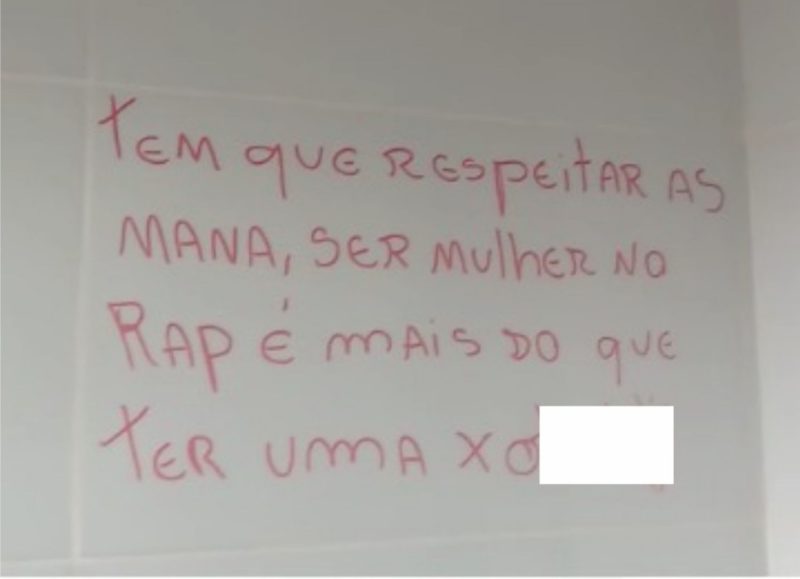 TEM QUE RESPEITAR AS
MANA, SER MULHER NO
RAP É MAIS DO QUE
TER UMA XO